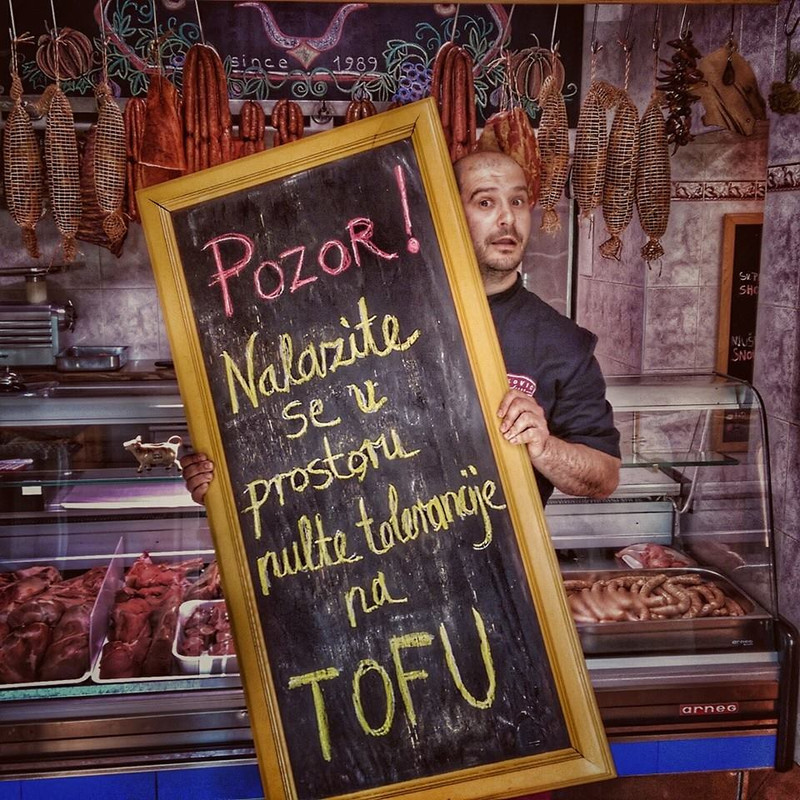 since 1989
Pozor!
Nalazite
se v
prostoru
nulte tolerancije
na
TOFU
arneg